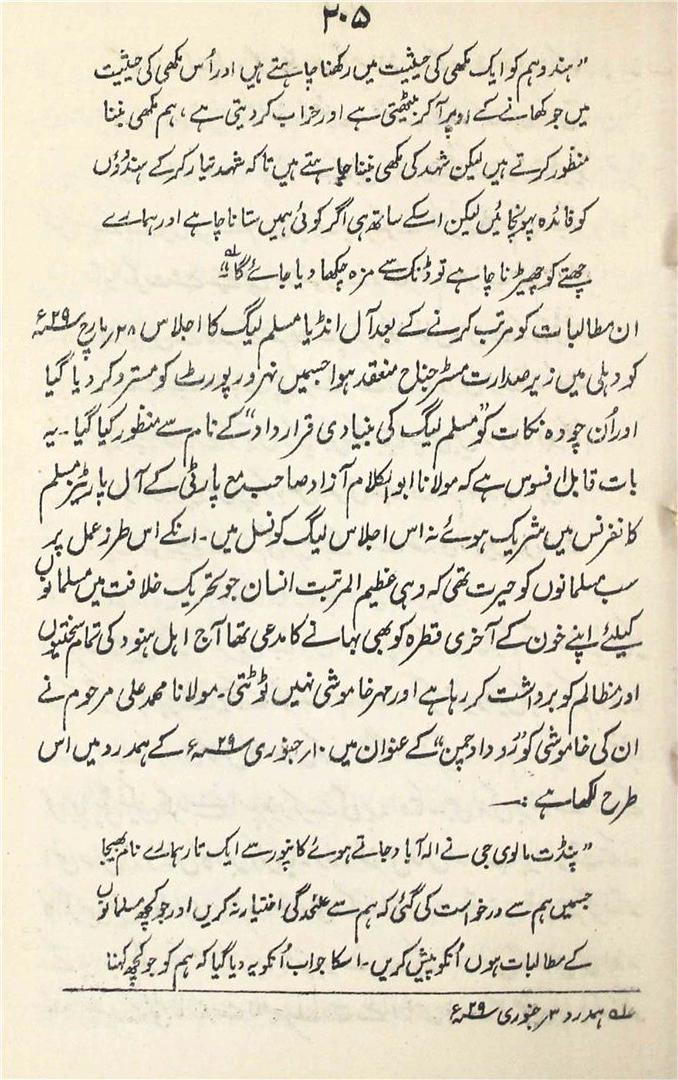 ۲۰۵
"ہندو ہم کو ایک مکھی کی حیثیت میں رکھنا چاہتے ہیں اور اُس مکھی کی حیثیت
میں جو کھانے کے اوپر آکر بیٹھتی ہے اور خراب کر دیتی ہے، ہم مکھی بننا
منظور کرتے ہیں لیکن شہد کی مکھی بننا چاہتے ہیں تاکہ شہد تیار کر کے ہندوؤں
کو فائدہ پہونچائیں لیکن اسکے ساتھ ہی اگر کوئی ہمیں ستانا چاہے اور ہمارے
چھتے کو چھیڑنا چاہے تو ڈنک سے مزہ چکھا دیا جائے گا" لہ
ان مطالبات کو مرتب کرنے کے بعد آل انڈیا مسلم لیگ کا اجلاس ۲۸؍ مارچ ۲۹ء
کو دہلی میں زیر صدارت مسٹر جناح منعقد ہوا جسمیں نہرو رپورٹ کو مسترد کر دیا گیا
اور اُن چودہ نکات کو "مسلم لیگ کی بنیادی قرارداد" کے نام سے منظور کیا گیا۔ یہ
بات قابل افسوس ہے کہ مولانا ابوالکلام آزاد صاحب مع پارٹی کے آل پارٹیز مسلم
کانفرنس میں شریک ہوئے نہ اس اجلاس لیگ کونسل میں۔ انکے اس طرز عمل پر
سب مسلمانوں کو حیرت تھی کہ وہی عظیم المرتبت انسان جو تحریک خلافت میں مسلمانوں
کیلئے اپنے خون کے آخری قطرہ کو بھی بہانے کا مدعی تھا آج اہل ہنود کی تمام سختیوں
اور مظالم کو برداشت کر رہا ہے اور مہر خاموشی نہیں ٹوٹتی۔ مولانا محمد علی مرحوم نے
ان کی خاموشی کو "رُوداد چمن" کے عنوان میں ۱۰؍ جنوری ۲۹ء کے ہمدرد میں اس
طرح لکھا ہے :—
"پنڈت مالوی جی نے الہ آباد جاتے ہوئے کانپور سے ایک تار ہمارے نام بھیجا
جسمیں ہم سے درخواست کی گئی کہ ہم سے علٰحدگی اختیار نہ کریں اور جو کچھ مسلمانوں
کے مطالبات ہوں اُنکو پیش کریں۔ اسکا جواب اُنکو یہ دیا گیا کہ ہم کو جو کچھ کہنا
لہ ہمدرد ۳؍ جنوری ۲۹ء